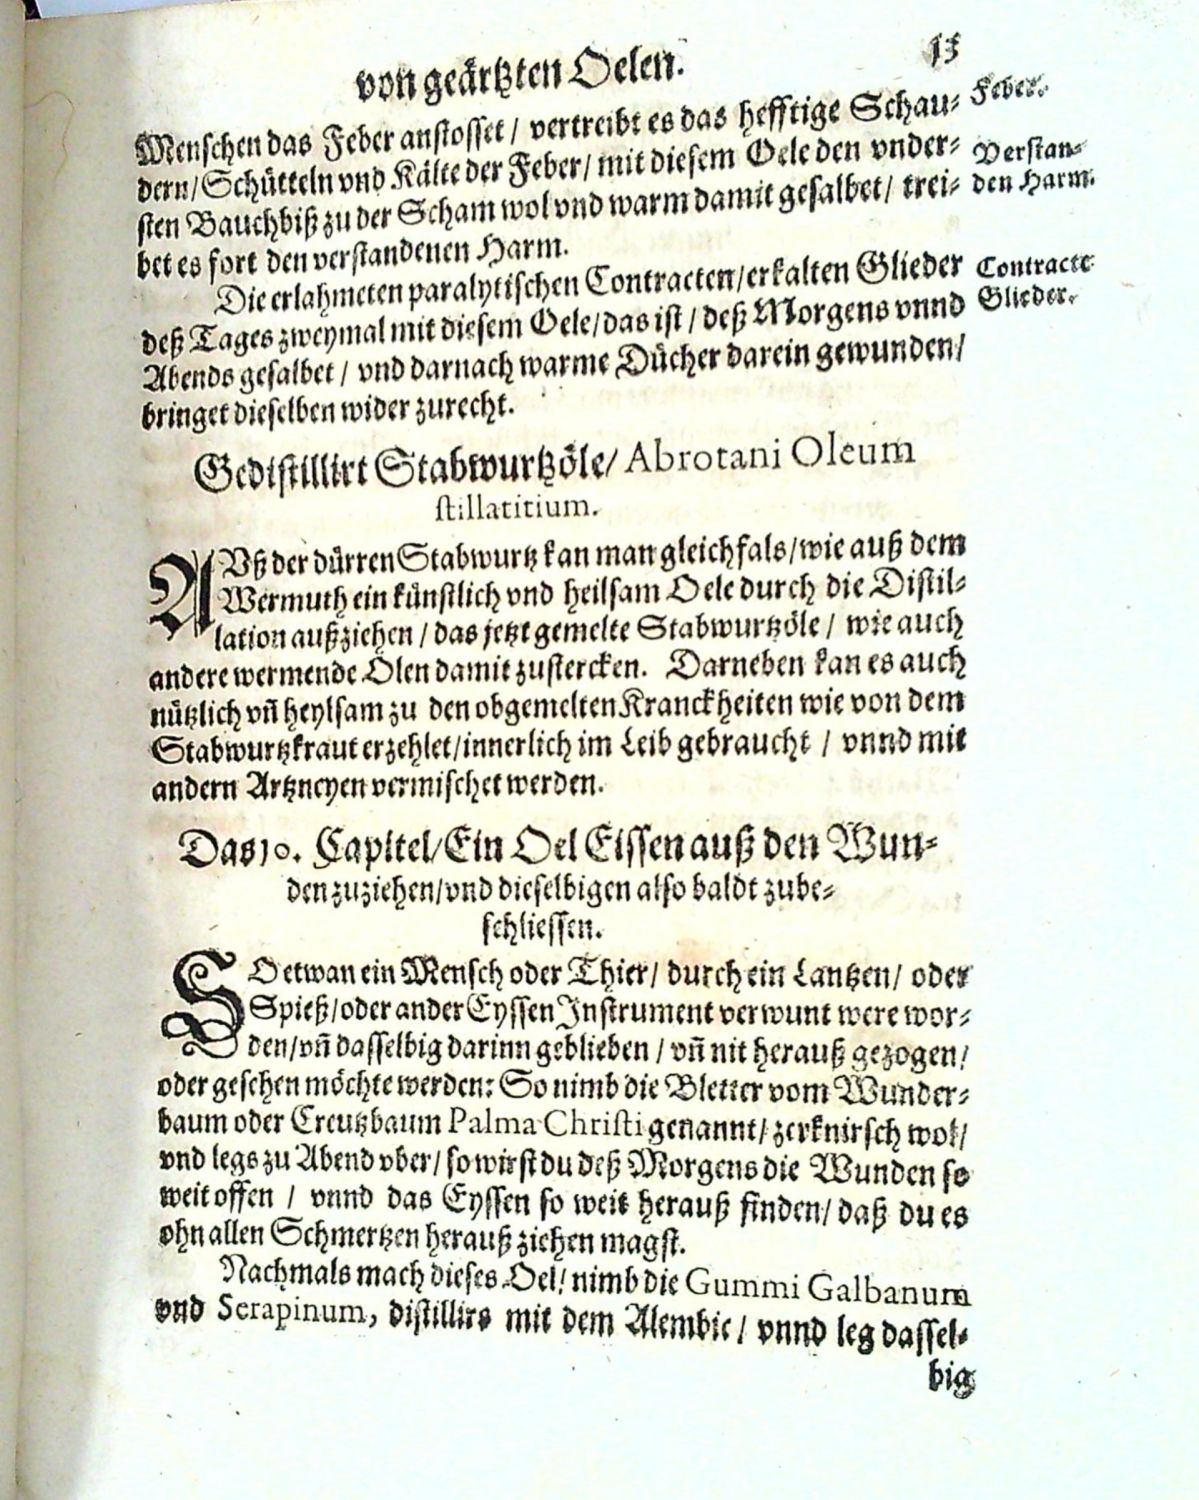 von geärtzten Oelen.
15
Menschen das Feber anstosset / vertreibt es das hefftige Schau-
Feber.
dern / Schütteln vnd Kälte der Feber / mit diesem Oele den vnder-
Verstan-
sten Bauch biß zu der Scham wol vnd warm damit gesalbet / trei-
den Harm.
bet es fort den verstandenen Harm.
Die erlahmeten paralytischen Contracten / erkalten Glieder
Contracte
deß Tages zweymal mit diesem Oele / das ist / deß Morgens vnnd
Glieder.
Abends gesalbet / vnd darnach warme Dücher darein gewunden /
bringet dieselben wider zurecht.
Gedistillirt Stabwurtzöle / Abrotani Oleum
stillatitium.
AVß der dürren Stabwurtz kan man gleichfals / wie auß dem
Wermuth ein künstlich vnd heilsam Oele durch die Distil-
lation außziehen / das jetzt gemelte Stabwurtzöle / wie auch
andere wermende Olen damit zustercken. Darneben kan es auch
nützlich vn̄ heylsam zu den obgemelten Kranckheiten wie von dem
Stabwurtzkraut erzehlet / innerlich im Leib gebraucht / vnnd mit
andern Artzneyen vermischet werden.
Das 10. Capitel / Ein Oel Eissen auß den Wun-
den zuziehen / vnd dieselbigen also baldt zube-
schliessen.
SO etwan ein Mensch oder Thier / durch ein Lantzen / oder
Spieß / oder ander Eyssen Instrument verwunt were wor-
den / vn̄ dasselbig darinn geblieben / vn̄ nit herauß gezogen /
oder gesehen möchte werden: So nimb die Bletter vom Wunder-
baum oder Creutzbaum Palma Christi genannt / zerknirsch wol /
vnd legs zu Abend vber / so wirst du deß Morgens die Wunden so
weit offen / vnnd das Eyssen so weit herauß finden / daß du es
ohn allen Schmertzen herauß ziehen magst.
Nachmals mach dieses Oel / nimb die Gummi Galbanum
vnd Serapinum, distillirs mit dem Alembic / vnnd leg dassel-
big